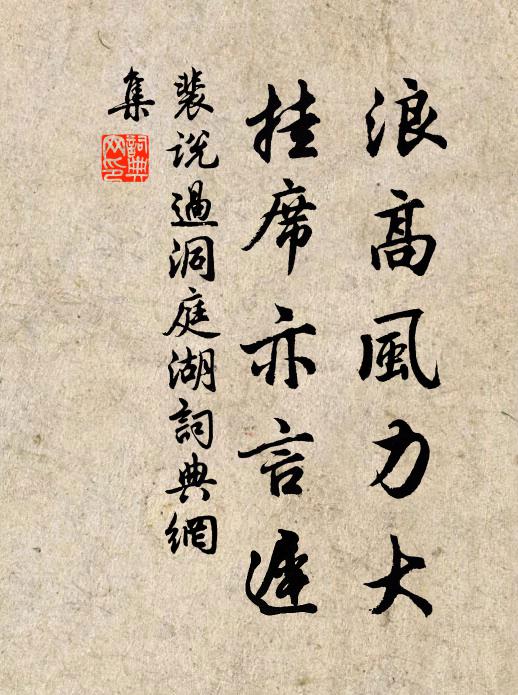 浪高風力大
挂席亦言遲
裴説過洞庭湖詞典網
集
詞典
网印